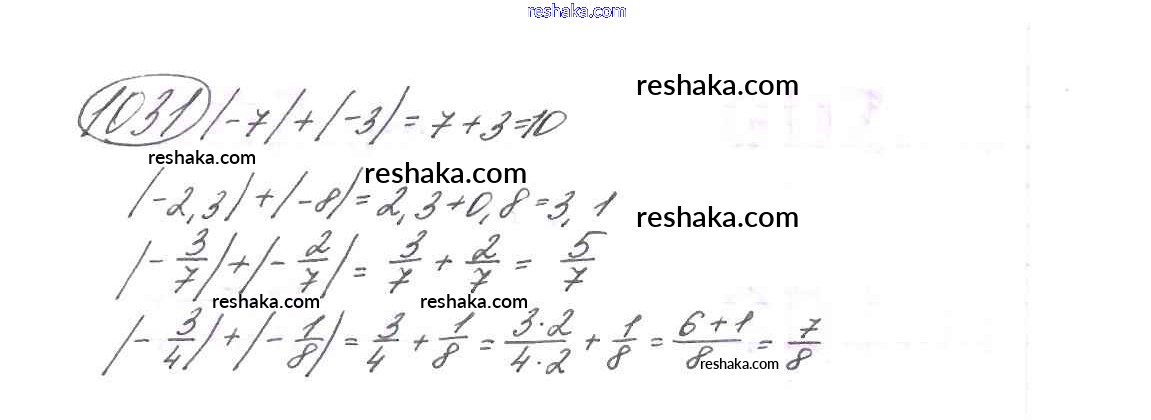 reshaka.com
reshaka.com
1031 |-7|+|-3|=7+3=10
reshaka.com
reshaka.com
|-2,3|+|-8|=2,3+0,8=3,1
reshaka.com
|-3/7|+|-2/7|=3/7+2/7=5/7
reshaka.com reshaka.com
|-3/4|+|-1/8|=3/4+1/8=3·2/4·2+1/8=6+1/8=7/8
reshaka.com